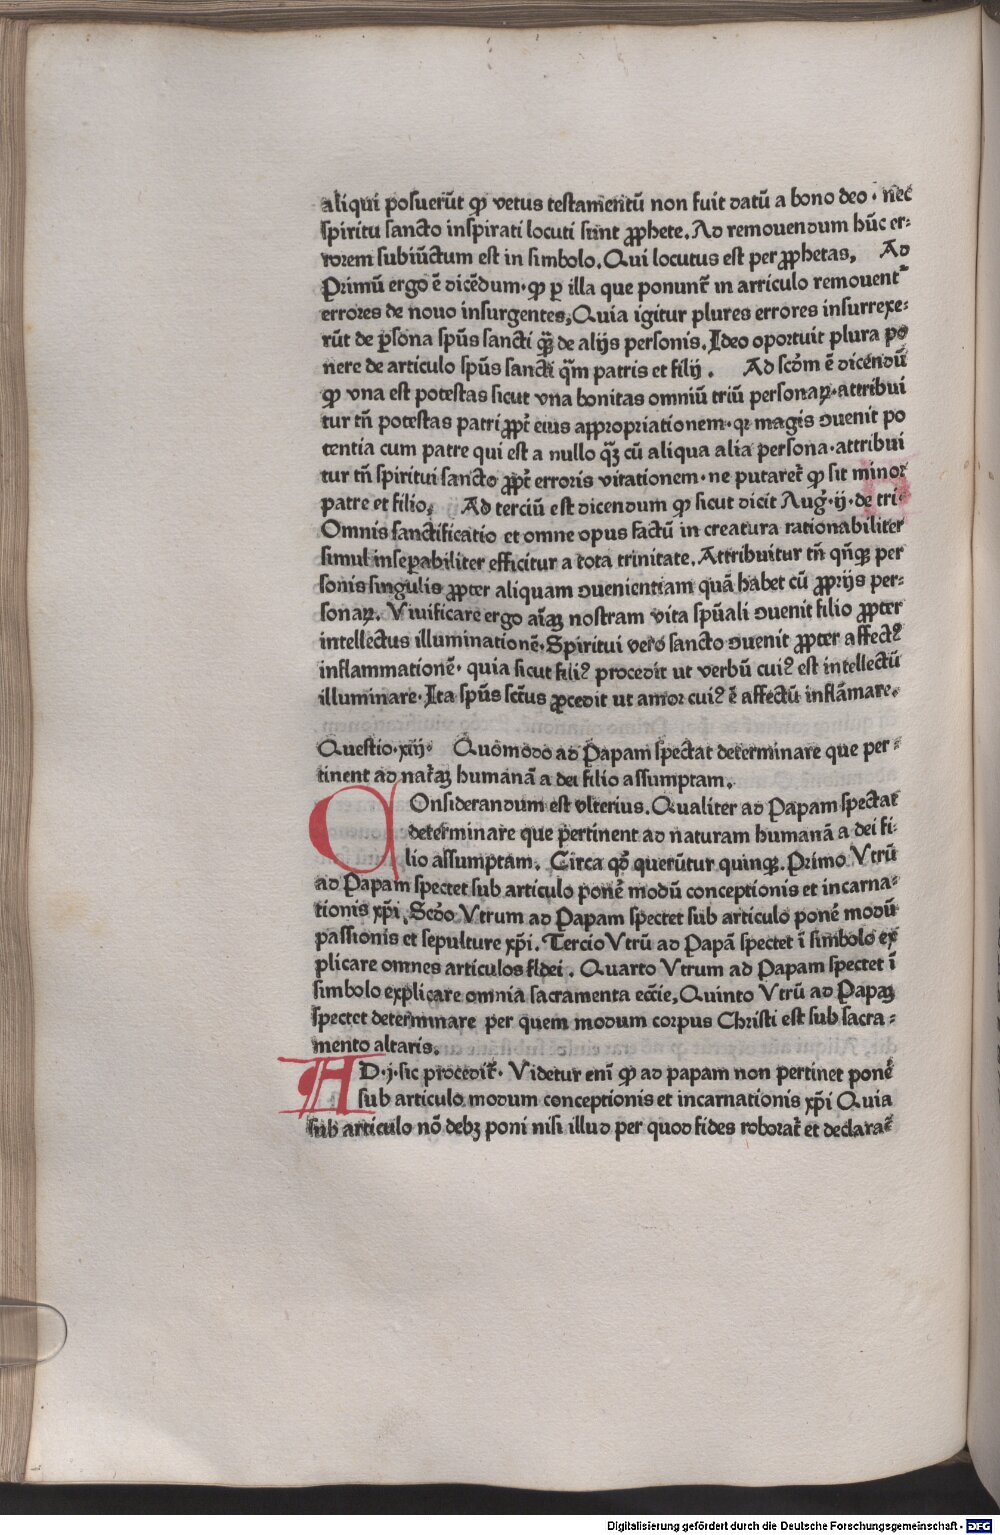 aliqui posuerūt ꝙ vetus testamentū non fuit datū a bono deo · nec
spiritu sancto inspirati locuti sunt ꝓphete. Ad remouendum hūc er-
rorem subiūctum est in simbolo. Qui locutus est per ꝓphetas, Ad
Primū ergo ē dicēdum · ꝙ ꝑ illa que ponunt᷑ in articulo remouent᷑
errores de nouo insurgentes, Quia igitur plures errores insurrexe-
rūt de ꝑsona spūs sancti qꝫ̄ de alijs personis. Ideo oportuit plura po
nere de articulo spūs sancti q̄m patris et filij . Ad scdm̄ ē dicendū
ꝙ vna est potestas sicut vna bonitas omniū triū personaꝝ · attribui
tur tn̄ potestas patri ꝓpt̄ eius appropriationem · qꝛ magis ↄuenit po
tentia cum patre qui est a nullo qꝫ̄ cū aliqua alia persona · attribui
tur tn̄ spiritui sancto ꝓpt̄ erroris vitationem · ne putaret᷑ ꝙ sit minor
patre et filio, Ad terciū est dicendum ꝙ sicut dicit Aug᷑ · ij · de tri ·
Omnis sanctificatio et omne opus factū in creatura rationabiliter
simul inseꝑabiliter efficitur a tota trinitate. Attribuitur tn̄ qn̄qꝫ per
sonis singulis ꝓpter aliquam ↄuenientiam quā habet cū ꝓprijs per-
sonaꝝ. Viuificare ergo aīaꝫ nostram vita spūali ↄuenit filio ꝓpter
intellectus illuminationē. Spiritui vero sancto ↄuenit ꝓpter affectꝰ
inflammationē · quia sicut filiꝰ procedit ut verbū cuiꝰ est intellectū
illuminare. Ita spūs sctūs ꝓcedit ut amor cuiꝰ ē affectū inflāmare.
Questio · xiij · Quomodo ad Papam spectat determinare que per-
tinent ad nat᷑aꝫ humanā a dei filio assumptam.
COnsiderandum est vlterius. Qualiter ad Papam spectat
determinare que pertinent ad naturam humanā a dei fi-
lio assumptam. Circa qd̄ querūtur quinqꝫ. Primo Vtrū
ad Papam spectet sub articulo ponē modū conceptionis et incarna-
tionis xp̄i. Scdo Vtrum ad Papam spectet sub articulo ponē modū
passionis et sepulture xp̄i. Tercio Vtrū ad Papā spectet ī simbolo ex
plicare omnes articulos fidei. Quarto Vtrum ad Papam spectet ī
simbolo explicare omnia sacramenta ecc̄ie, Quinto Vtrū ad Papaꝫ
spectet determinare per quem modum corpus Christi est sub sacra-
mento altaris.
AD · j · sic procedit᷑ · Videtur enī ꝙ ad papam non pertinet ponē
sub articulo modum conceptionis et incarnationis xp̄i Quia
sub articulo nō debꝫ poni nisi illud per quod fides roborat᷑ et declarat᷑
Digitalisierung gefördert durch die Deutsche Forschungsgemeinschaft - DFG